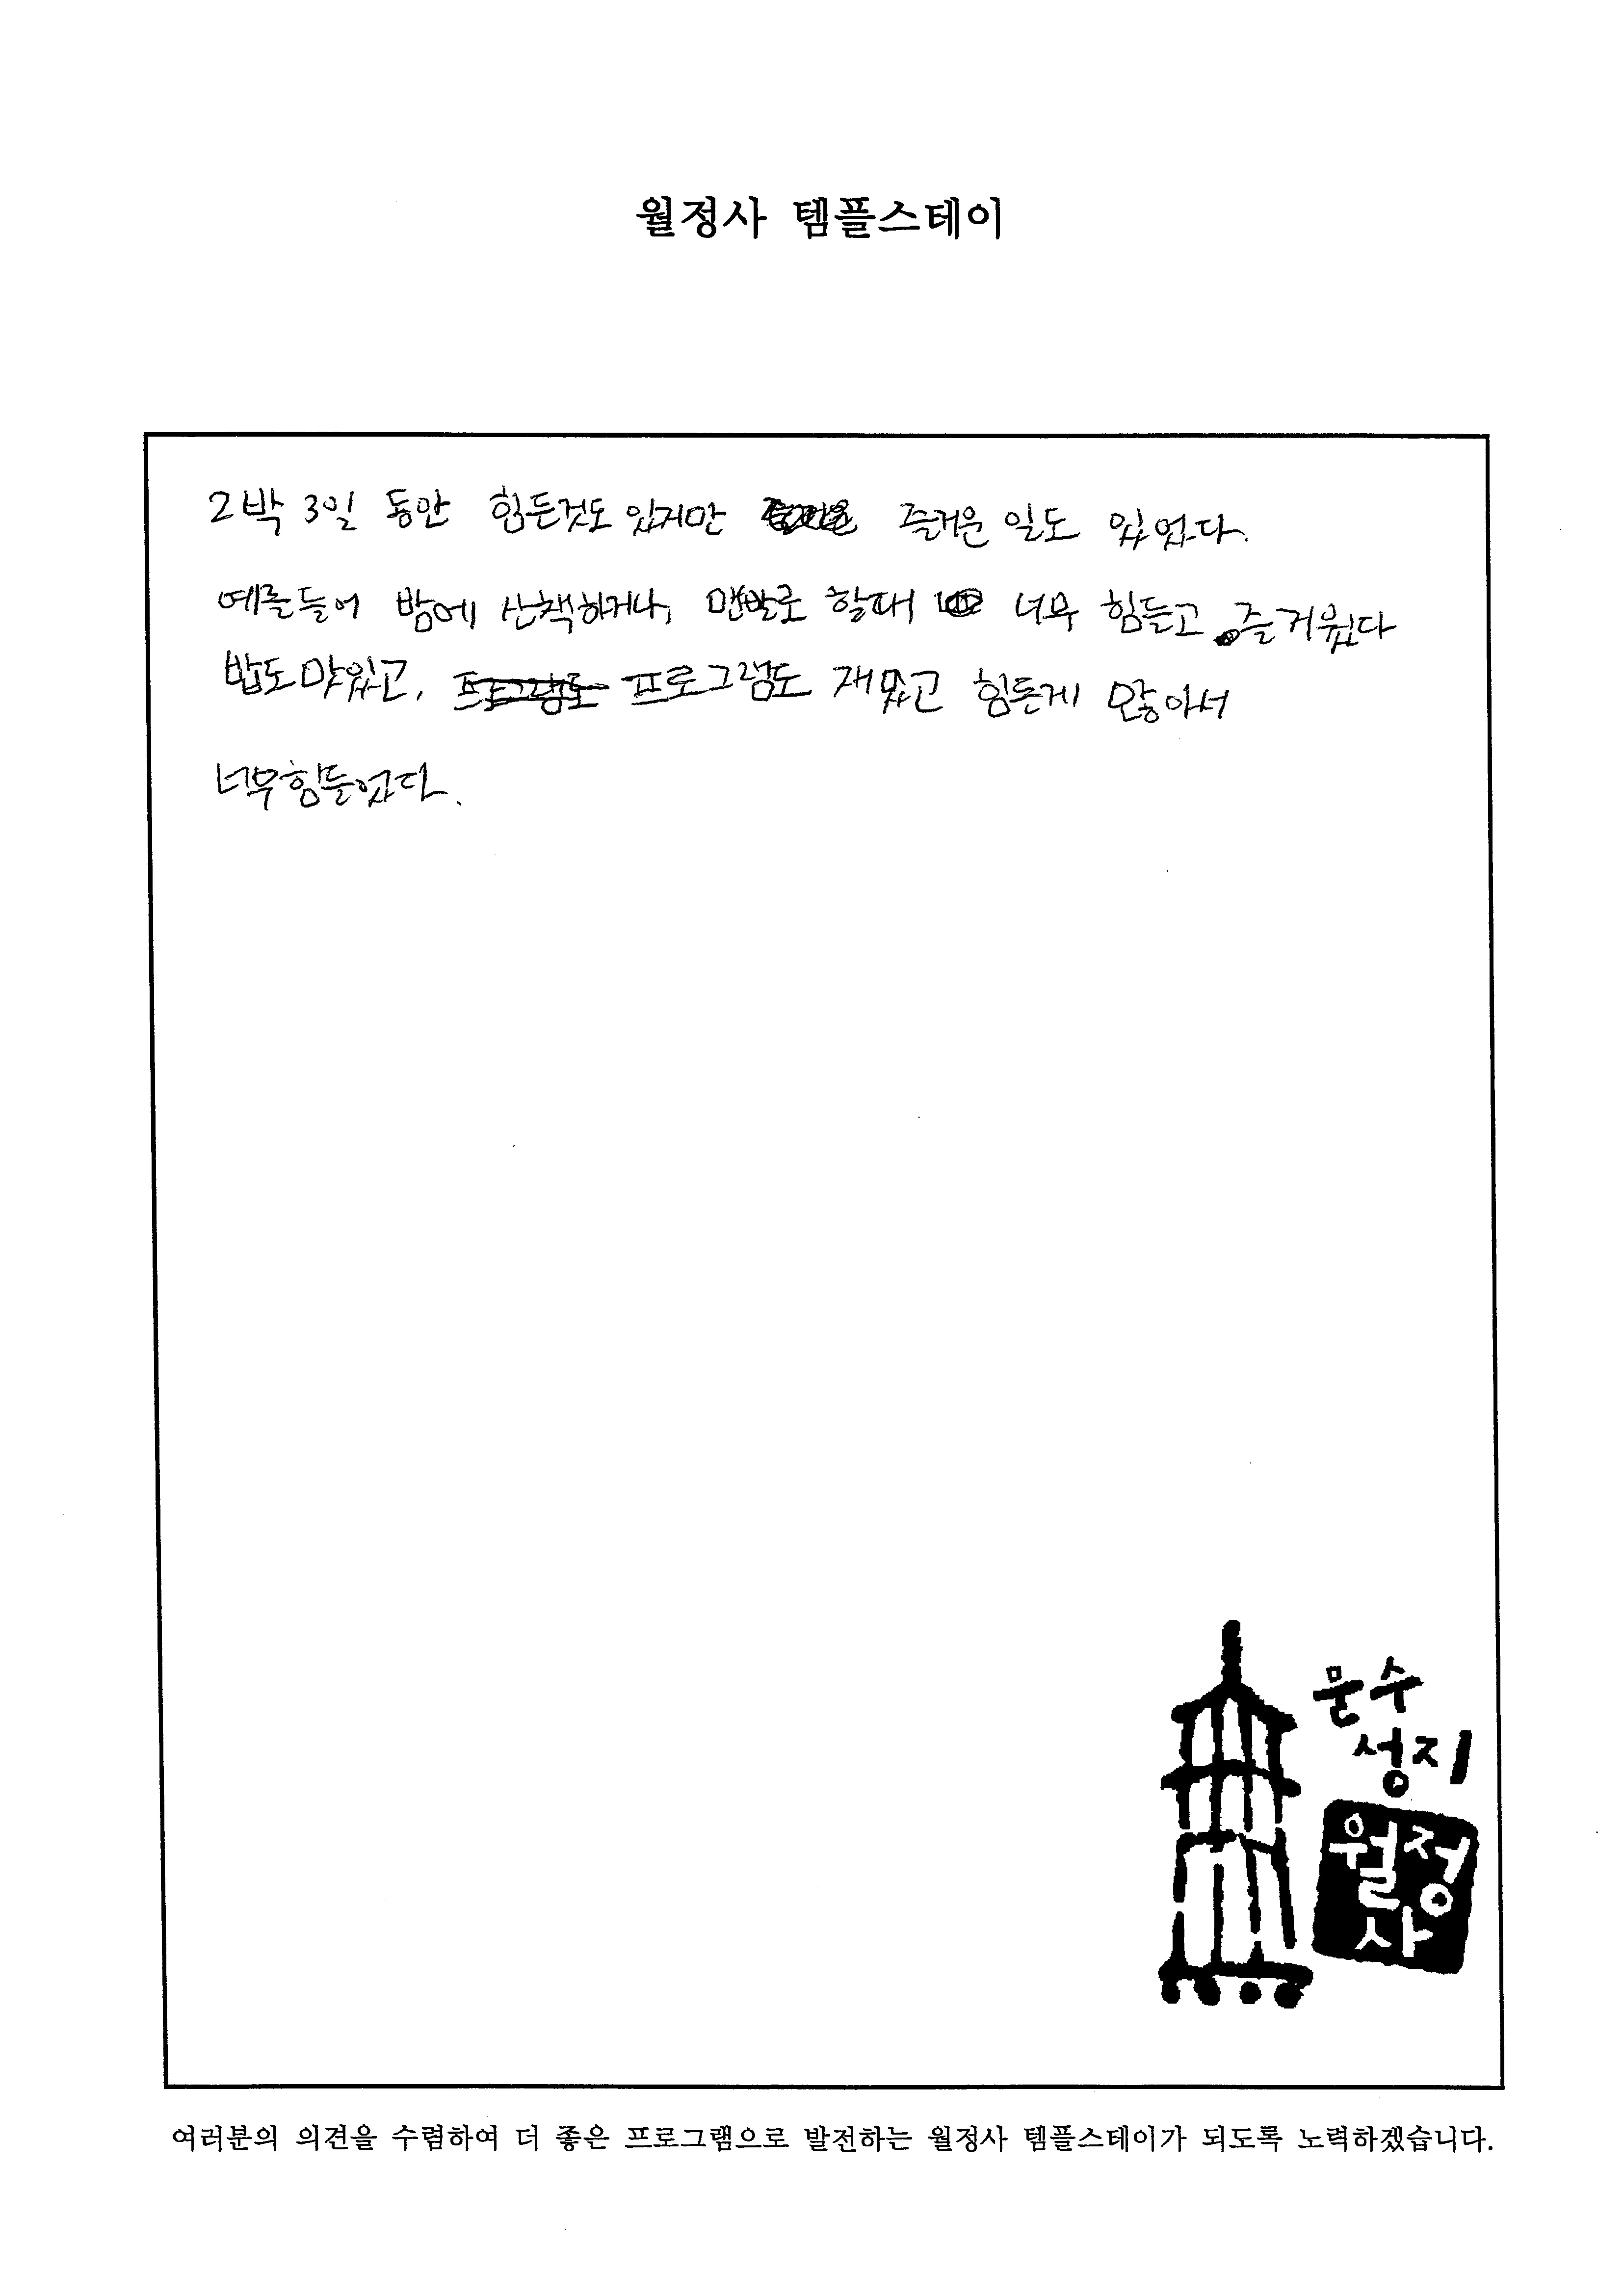 월정사 템플스테이
2박 3일 동안 힘든것도 있지만 즐거운 일도 있었다.
예를들어 밤에 산책하거나, 맨발로 할때 너무 힘들고 즐거웠다
밥도 맛있고, 프로그램도 프로그램도 재밌고 힘든게 많아서
너무힘들었다.
문수
성지
월정
사
여러분의 의견을 수렴하여 더 좋은 프로그램으로 발전하는 월정사 템플스테이가 되도록 노력하겠습니다.